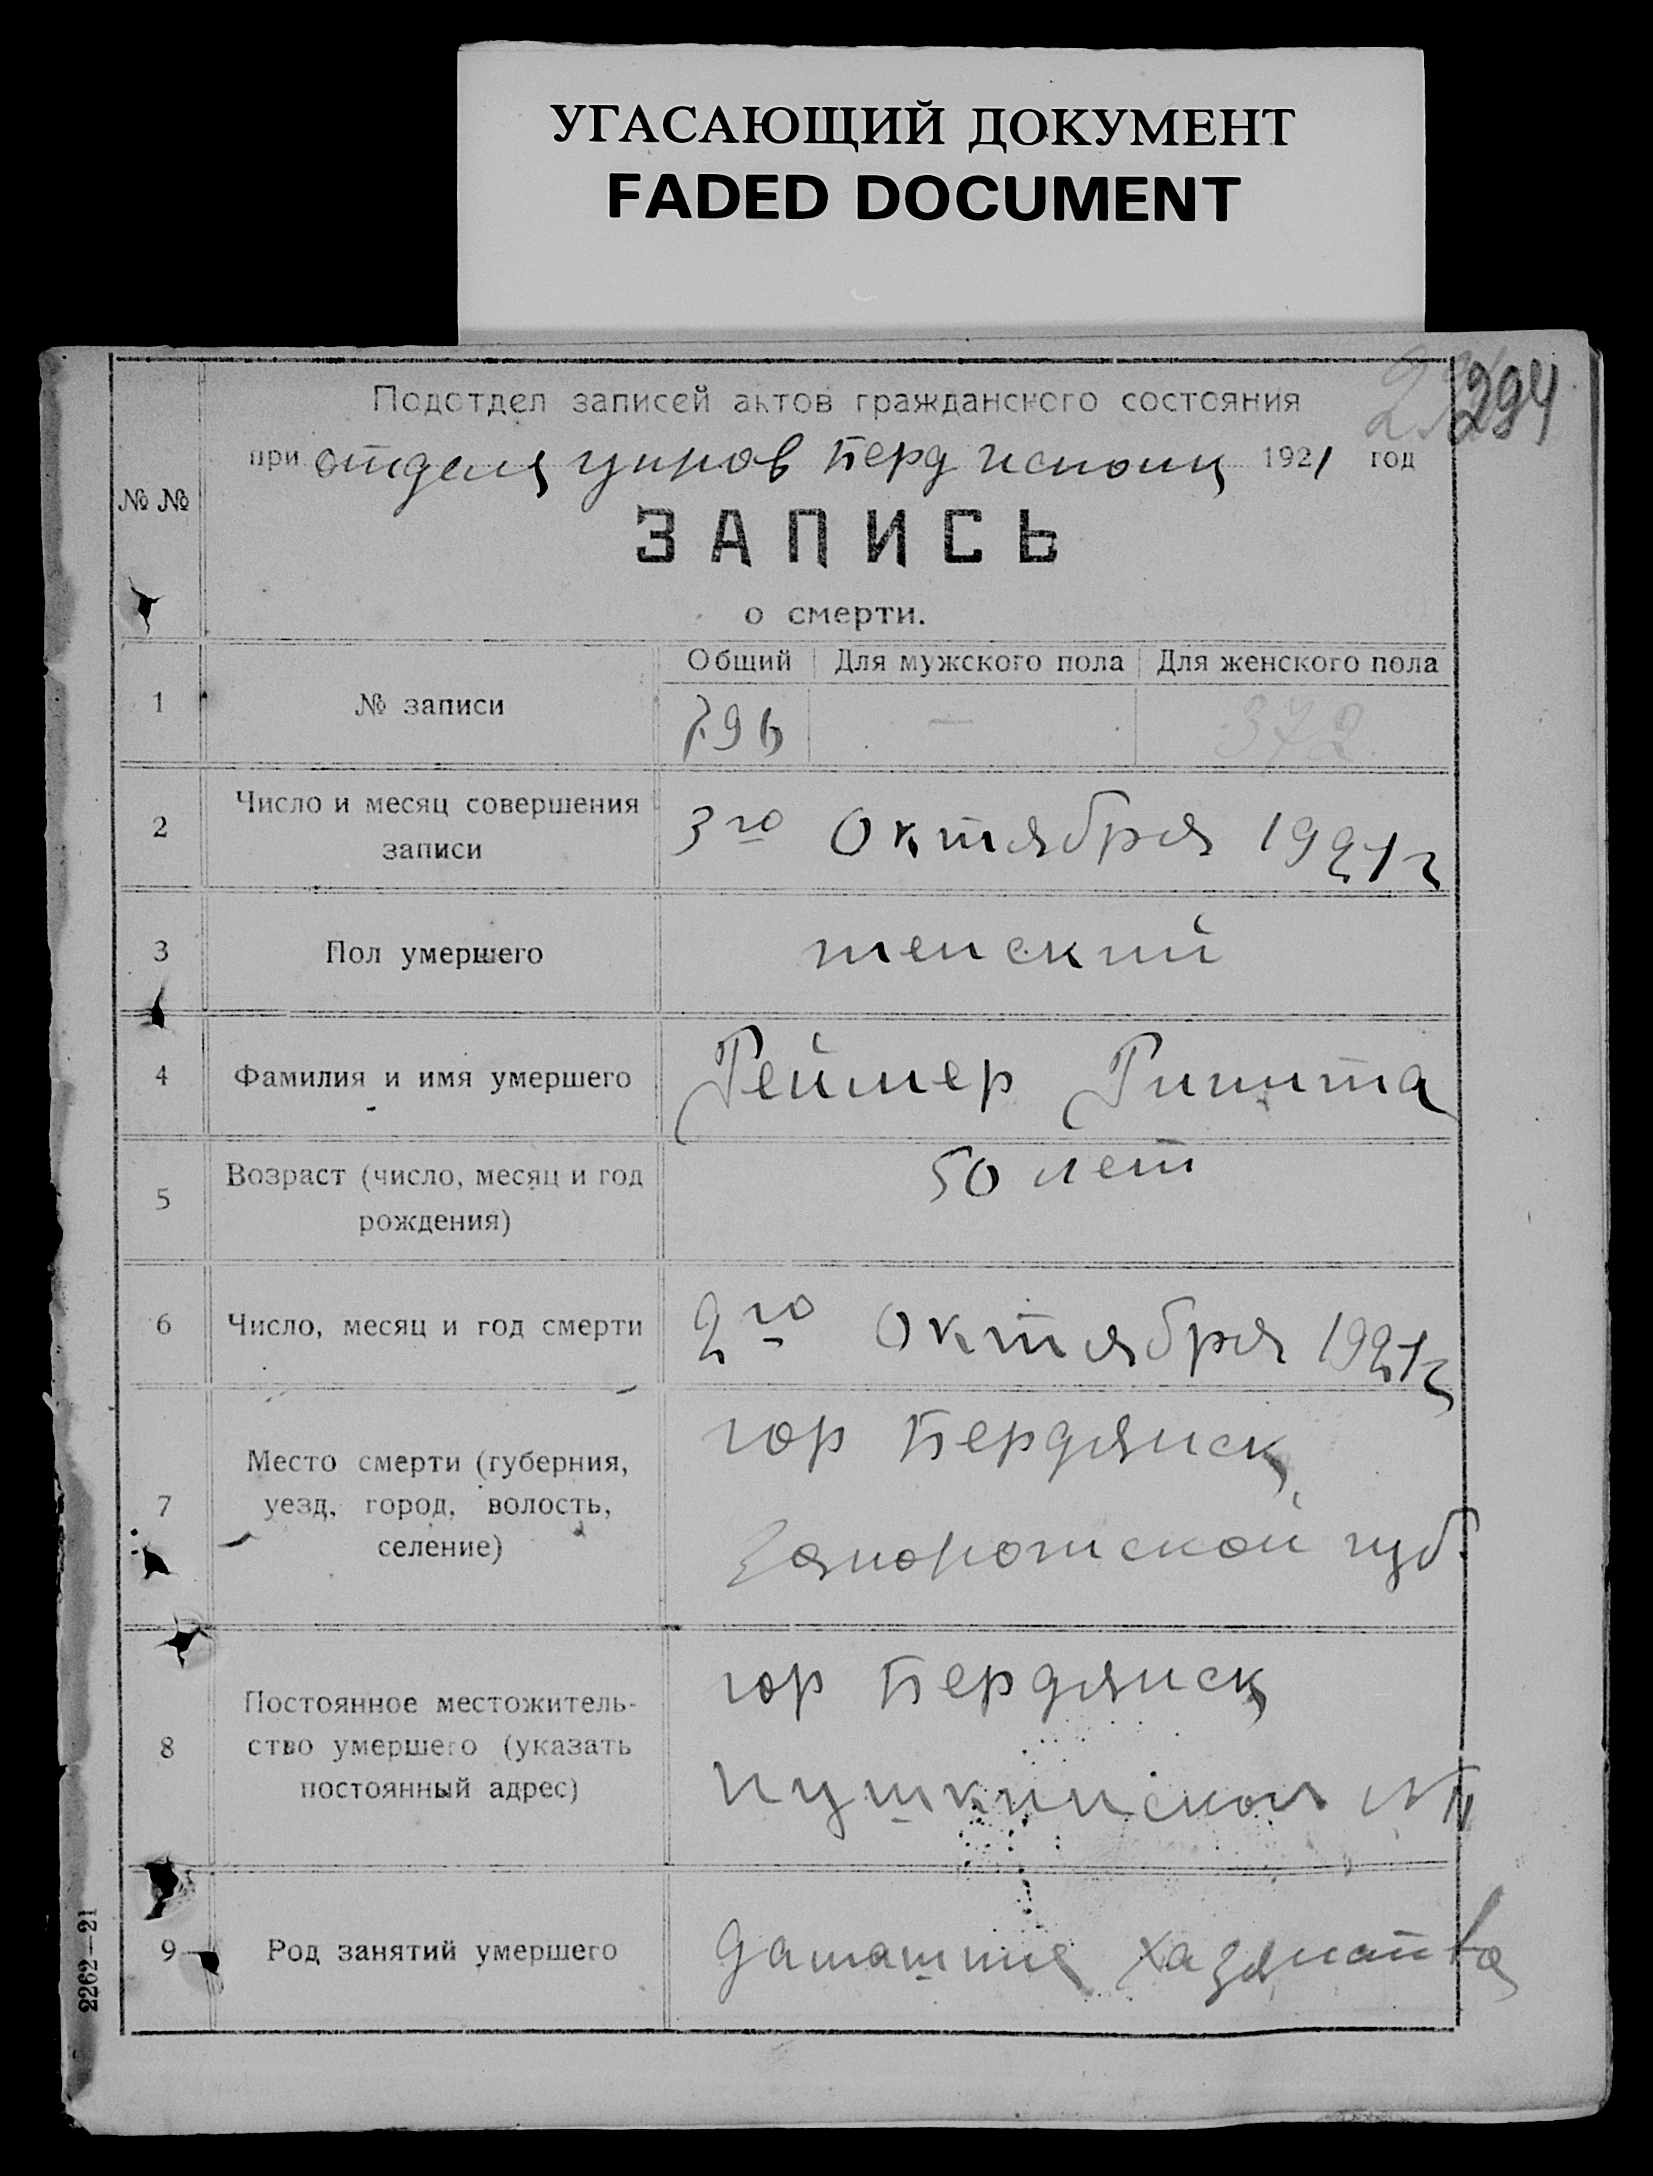 УГАСАЮЩИЙ ДОКУМЕНТ
FADED DOCUMENT
294
Подотдел записей актов гражданского состояния
при отделе управ Берд исполк 1921 год
№ №
ЗАПИСЬ
о смерти.
Общий Для мужского пола Для женского пола
1 № записи 796 — 372
2 Число и месяц совершения
записи
3го Октября 1921 г
3 Пол умершего женский
4 Фамилия и имя умершего Реймер
5 Возраст (число, месяц и год
рождения)
50 лет
6 Число, месяц и год смерти 2го Октября 1921 г
7 Место смерти (губерния,
уезд, город, волость,
селение)
гор Бердянск
Запорожской губ.
8 Постоянное местожитель-
ство умершего (указать
постоянный адрес)
гор Бердянск
Пушкинская №
9 Род занятий умершего дамашние хазяйства
2262—21